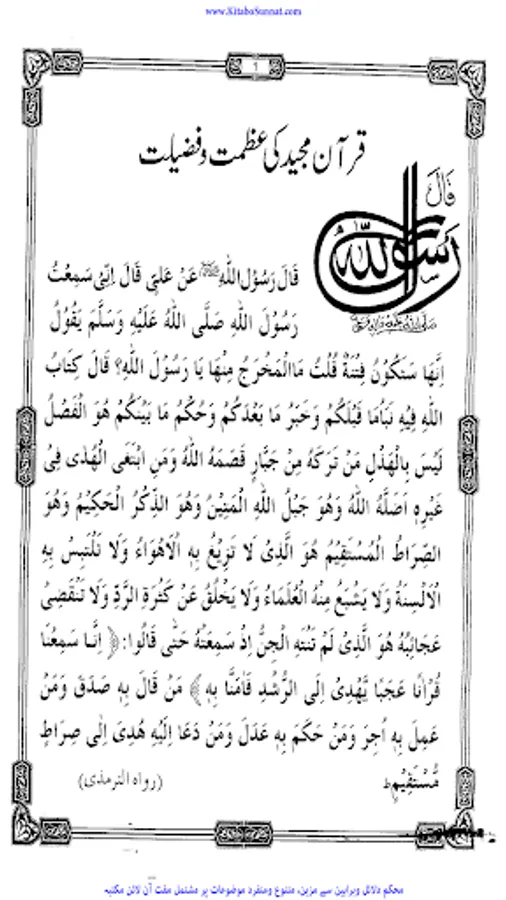 www.KitaboSunnat.com
1
قرآن مجید کی عظمت و فضیلت
قَالَ
رَسُوْلُ اللّٰهِ
قَالَ رَسُوْلُ اللّٰهِ ﷺ عَنْ عَلِيٍّ قَالَ اِنِّىْ سَمِعْتُ
رَسُوْلَ اللهِ صَلَّى اللّٰهُ عَلَيْهِ وَسَلَّمَ يَقُوْلُ
اِنَّهَا سَتَكُوْنُ فِتْنَةٌ قُلْتُ مَاالْمَخْرَجُ مِنْهَا يَا رَسُوْلَ اللهِ؟ قَالَ كِتَابُ
اللهِ فِيْهِ نَبَأُمَا قَبْلَكُمْ وَخَبَرُ مَا بَعْدَكُمْ وَحُكْمُ مَا بَيْنَكُمْ هُوَ الْفَصْلُ
لَيْسَ بِالْهَذْلِ مَنْ تَرَكَهُ مِنْ جَبَّارٍ قَصَمَهُ اللهُ وَمَنِ ابْتَغَى الْهُدٰى فِىْ
غَيْرِهٖ اَضَلَّهُ اللهُ وَهُوَ حَبْلُ اللهِ الْمَتِيْنُ وَهُوَ الذِّكْرُ الْحَكِيْمُ وَهُوَ
الصِّرَاطُ الْمُسْتَقِيْمُ هُوَ الَّذِىْ لَا تَزِيْغُ بِهِ الْاَهْوَاءُ وَلَا تَلْتَبِسُ بِهِ
الْاَلْسِنَةُ وَلَا يَشْبَعُ مِنْهُ الْعُلَمَاءُ وَلَا يَخْلُقُ عَنْ كَثْرَةِ الرَّدِّ وَلَا تَنْقَضِىْ
عَجَائِبُهُ هُوَ الَّذِىْ لَمْ تَنْتَهِ الْجِنُّ اِذْ سَمِعَتْهُ حَتّٰى قَالُوْا: ﴿ اِنَّا سَمِعْنَا
قُرْاٰنًا عَجَبًا يَّهْدِىْ اِلَى الرُّشْدِ فَاٰمَنَّا بِهٖ ﴾ مَنْ قَالَ بِهٖ صَدَقَ وَمَنْ
عَمِلَ بِهٖ اُجِرَ وَمَنْ حَكَمَ بِهٖ عَدَلَ وَمَنْ دَعَا اِلَيْهِ هُدِىَ اِلٰى صِرَاطٍ
مُّسْتَقِيْمٍ ط (رواه الترمذی)
محکم دلائل وبراہین سے مزین، متنوع ومنفرد موضوعات پر مشتمل مفت آن لائن مکتبہ